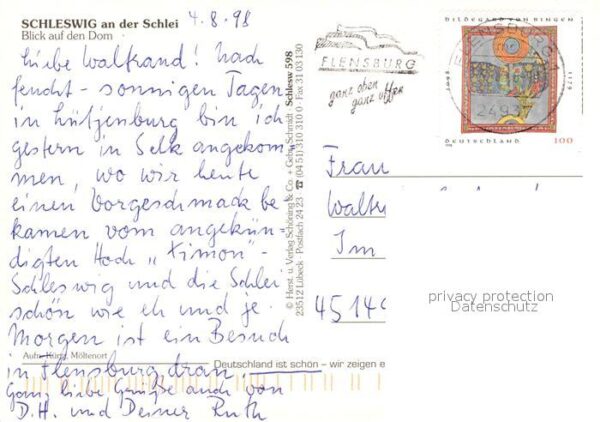 SCHLESWIG an der Schlei
Blick auf den Dom
4.8.98
Liebe Waltraud! Nach
feucht-sonnigen Tagen
in Lütjenburg bin ich
gestern in Selk angekom
men, wo wir heute
einen Vorgeschmack be
kamen vom angekün-
digten Hoch „Timon"-
Schleswig und die Schlei
schön wie eh und je.
Morgen ist ein Besuch
in Flensburg dran.
Ganz liebe Grüße auch von
D.H. und Deiner Ruth
Aufn. Kürtz, Möltenort
Deutschland ist schön – wir zeigen e
© Herst. u. Verlag Schöning & Co. + Gebr. Schmidt Schlesw 598
23512 Lübeck · Postfach 24 23 ☎ (04 51) 310 310 0 · Fax 31 03 130
FLENSBURG
ganz oben
ganz offen
FLENSBURG 1
2493
HILDEGARD VON BINGEN
1098
1179
DEUTSCHLAND
100
Frau
Walt
Im
4514
privacy protection
Datenschutz